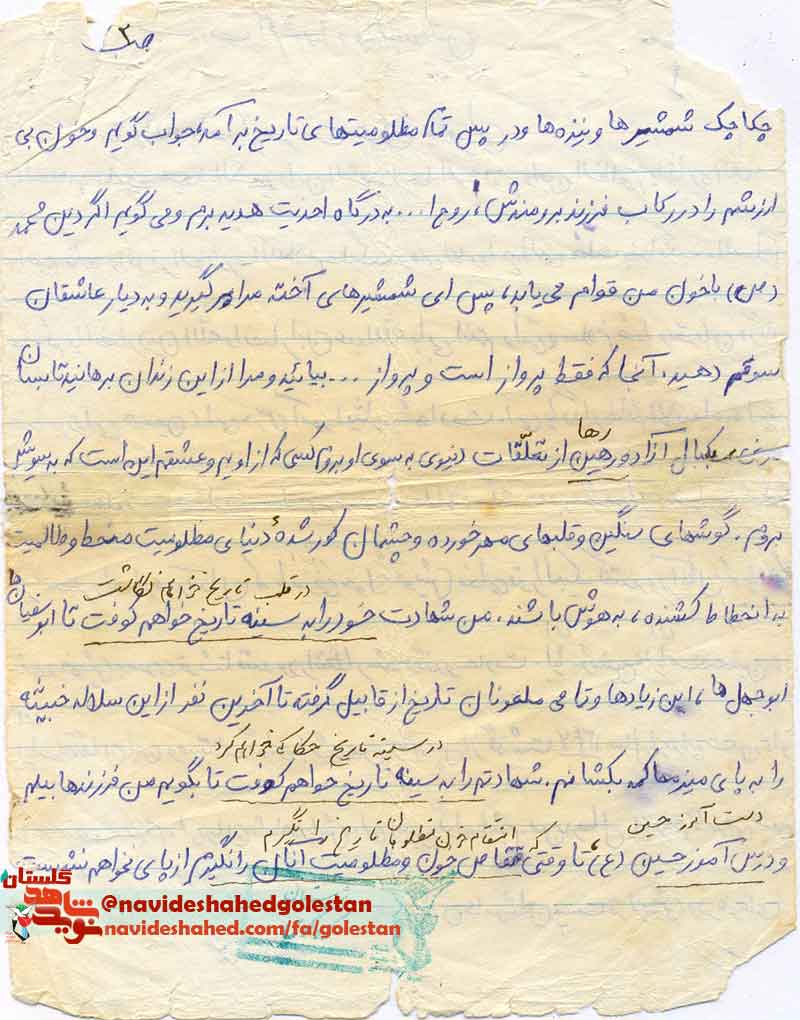 ص ۳
چکاچک شمشیرها و نیزه ها و در پس تمام مظلومیتهای تاریخ برآمده جواب گویم و خون بی
ارزشم را در رکاب فرزند برومندش، روح ا... به درگاه احدیت هدیه برم و می گویم اگر دین محمد
(ص) با خون من قوام می یابد، پس ای شمشیرهای آخته مرا بر گیرید و به دیار عاشقان
سوقم دهید. آنجا که فقط پرواز است و پرواز ... بیائید و مرا از این زندان برهانید تا بسان
رها
سبکبال آزاد و رهین از تعلّقات دنیوی به سوی او بروم کسی که از اویم و عشقم این است که به سویش
بروم. گوشهای سنگین و قلبهای مهر خورده و چشمان کور شدهٔ دنیای مظلومیت منحط و ظالمیت
در قلب تاریخ خواهم نگاشت
به انحطاط کشنده، به هوش باشند. من شهادت خود را به سینه تاریخ خواهم کوفت تا ابوسفیان ها
ابوجهل ها، ابن زیادها و تمامی ملعونان تاریخ از قابیل گرفته تا آخرین نفر از این سلاله خبیثه
در سینه تاریخ حکاکی خواهم کرد
را به پای میز محاکمه بکشانم. شهادتم را به سینه تاریخ خواهم کوفت تا بگویم من فرزند هابیلم
دست آموز حسین
انتقام خون مظلومان تاریخ را نگیرم
و درس آموز حسین (ع)، تا وقتی که تقاص خون و مظلومیت آنان را نگیرم از پای نخواهم نشست
نوید شاهد گلستان
@navideshahedgolestan
navideshahed.com/fa/golestan